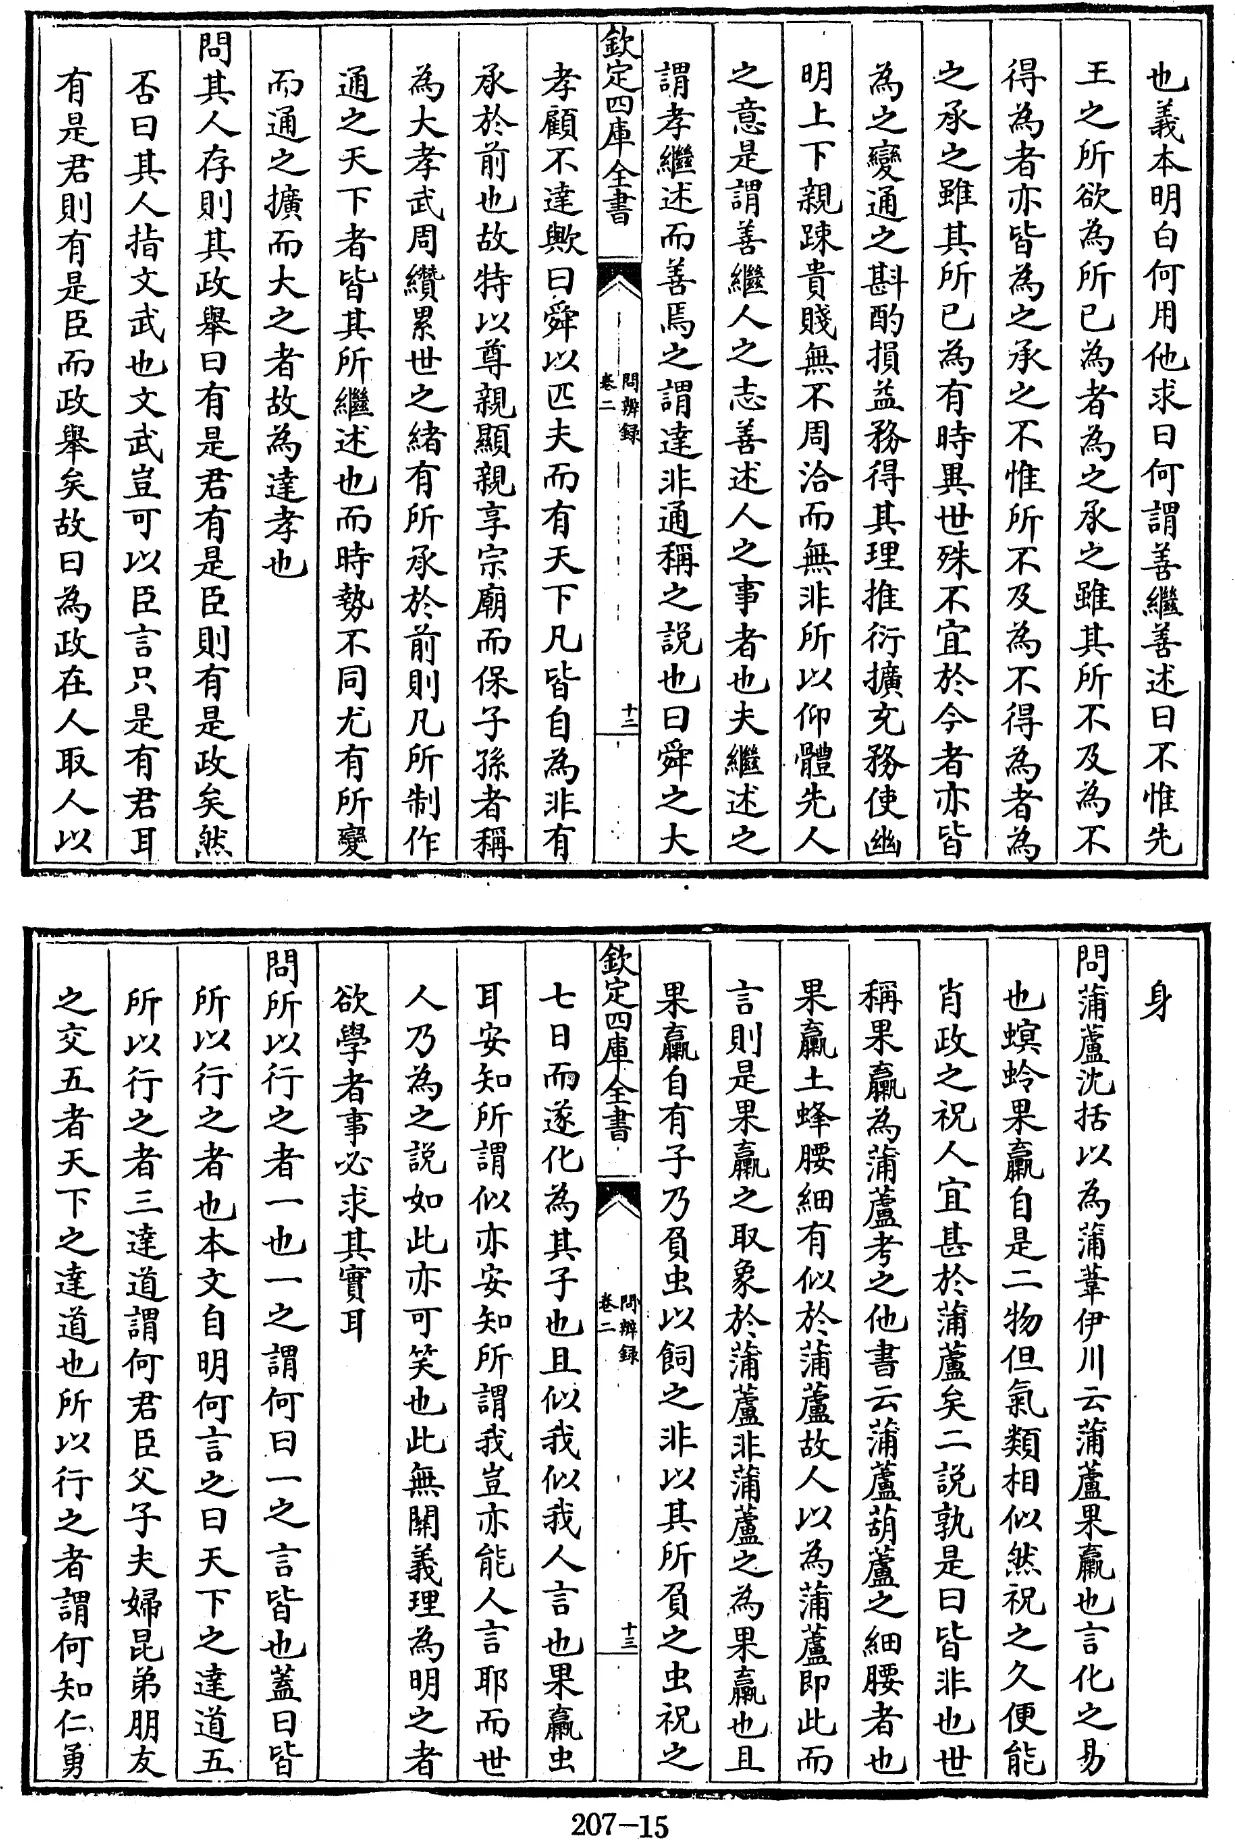 也義本明白何用他求曰何謂善繼善述曰不惟先
王之所欲為所已為者為之承之雖其所不及為不
得為者亦皆為之承之不惟所不及為不得為者為
之承之雖其所已為有時異世殊不宜於今者亦皆
為之變通之斟酌損益務得其理推衍擴充務使幽
明上下親踈貴賤無不周洽而無非所以仰體先人
之意是謂善繼人之志善述人之事者也夫繼述之
謂孝繼述而善焉之謂達非通稱之説也曰舜之大
欽定四庫全書
問辨錄
卷二
十二
孝顧不達歟曰舜以匹夫而有天下凡皆自為非有
承於前也故特以尊親顯親享宗廟而保子孫者稱
為大孝武周纘累世之緒有所承於前則凡所制作
通之天下者皆其所繼述也而時勢不同尤有所變
而通之擴而大之者故為達孝也
問其人存則其政舉曰有是君有是臣則有是政矣然
否曰其人指文武也文武豈可以臣言只是有君耳
有是君則有是臣而政舉矣故曰為政在人取人以
身
問蒲蘆沈括以為蒲葦伊川云蒲蘆果臝也言化之易
也螟蛉果臝自是二物但氣類相似然祝之久便能
肖政之祝人宜甚於蒲蘆矣二説孰是曰皆非也世
稱果臝為蒲蘆考之他書云蒲蘆葫蘆之細腰者也
果臝土蜂腰細有似於蒲蘆故人以為蒲蘆即此而
言則是果臝之取象於蒲蘆非蒲蘆之為果臝也且
果臝自有子乃負虫以飼之非以其所負之虫祝之
欽定四庫全書
問辨錄
卷二
十三
七日而遂化為其子也且似我似我人言也果臝虫
耳安知所謂似亦安知所謂我豈亦能人言耶而世
人乃為之説如此亦可笑也此無關義理為明之者
欲學者事必求其實耳
問所以行之者一也一之謂何曰一之言皆也蓋曰皆
所以行之者也本文自明何言之曰天下之達道五
所以行之者三達道謂何君臣父子夫婦昆弟朋友
之交五者天下之達道也所以行之者謂何知仁勇
207-15